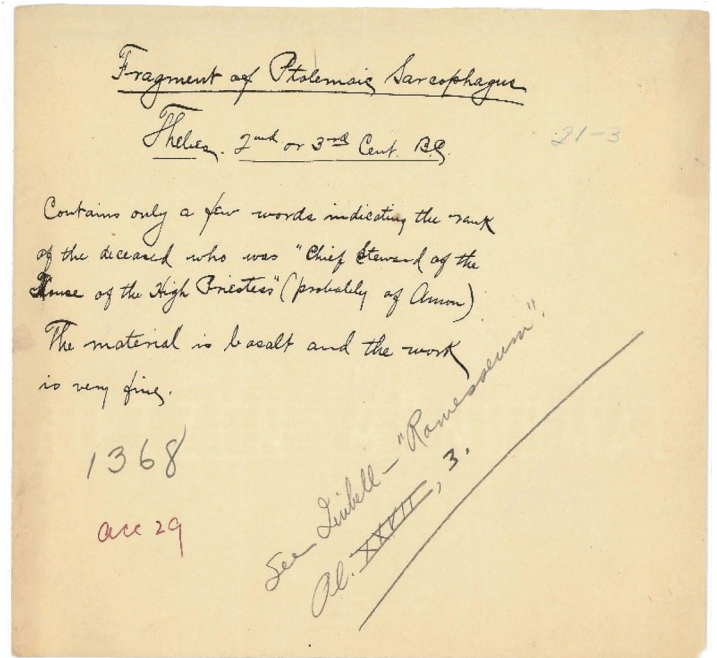 Fragment of Ptolemaic Sarcophagus
Thebes. 2nd or 3rd Cent. B.C.
21-3
Contains only a few words indicating the rank
of the deceased who was "Chief Steward of the
House of the High Priestess" (probably of Amon)
The material is basalt and the work
is very fine.
1368
acc 29
See Quibell - "Ramesseum".
Pl. XXVII, 3.